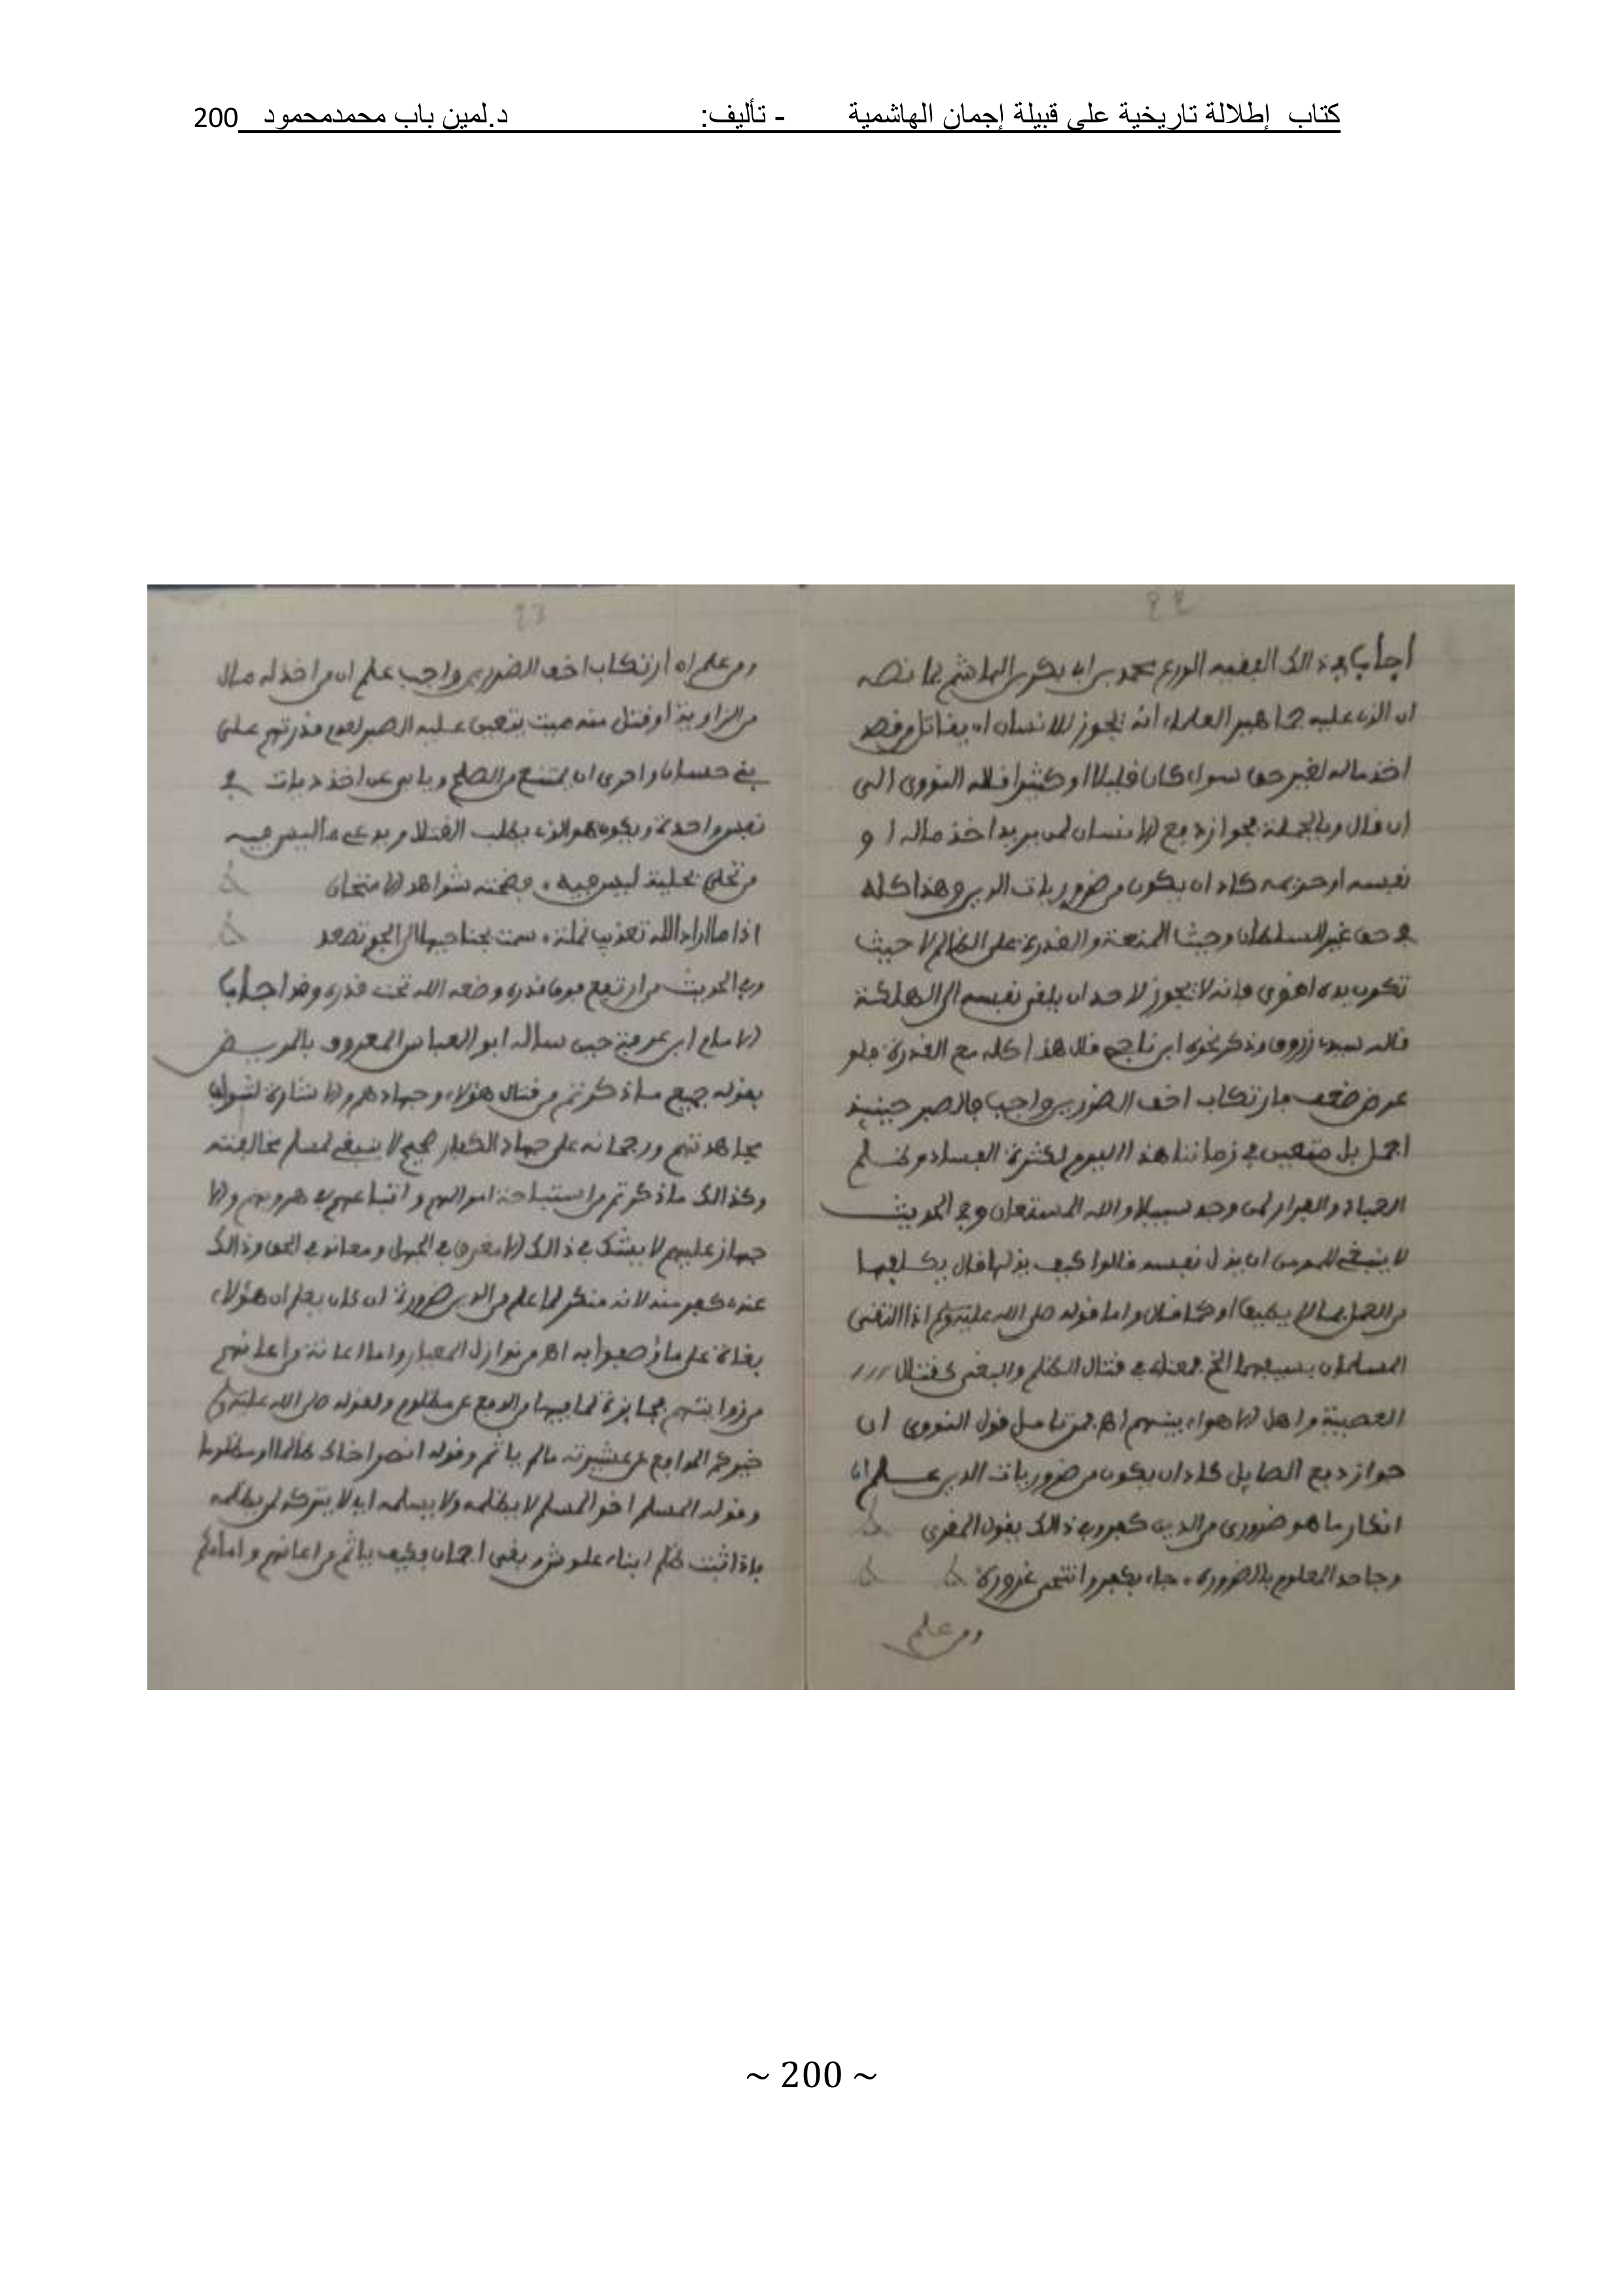 كتاب إطلالة تاريخية على قبيلة إجمان الهاشمية - تأليف: د.لمين باب محمدمحمود 200
22
اجاب في ذالك الفقيه الورع محمد بن ابي بكر الهاشم بما نصه
ان الذي عليه جماهير العلماء انه يجوز للانسان ان يقاتل من قصد
اخذ ماله بغير حق سواء كان قليلا او كثيرا قاله النووي الى
ان قال وبالجملة فجواز دفع الانسان لمن يريد اخذ ماله او
نفسه او حريمه كاد ان يكون من ضروريات الدين وهذا كله
في حق غير السلطان وحيث المنعة والقدرة على الظالم لا حيث
تكون يده اقوى فإنه لا يجوز لاحد ان يلقي نفسه الى الهلكة
قاله سيدي زروق وذكر نحوه ابن ناجي قال هذا كله مع القدرة فلو
عرض ضعف فارتكاب اخف الضررين واجب فالصبر حينيذ
اجمل بل متعين في زماننا هذا اليوم لكثرة الفساد و
العباد والفرار لمن وجد سبيلا والله المستعان وفي الحديث
لا ينبغي للمومن ان يذل نفسه قالوا كيف يذلها قال يكلفها
من العمل ما لا يطيق او كما قال واما قوله صلى الله عليه وسلم اذا التقى
المسلمان بسيفيهما الخ فمعناه في قتال الظلم والبغي كقتال
العصبية واهل الاهواء بينهم اهـ فمن تامل قول النووي ان
جواز دفع الصايل كاد ان يكون من ضروريات الدين علم ان
انكار ما هو ضروري من الدين كفر وفي ذالك يقول المقري
وجاحد المعلوم بالضروره جاء بكفر وانتحى غروره
ومن علم
23
ومن علم ان ارتكاب اخف الضررين واجب علم ان من اخذ له مال
من الزاوية او قتل منه ميت يتعين عليه الصبر لعدم قدرتهم على
بني حسان واحرى ان يمتنع من الصلح ويابى عن اخذ ديات في
نفس واحدة ويكون هو الذي يطلب القتلا ويدعي ما ليس فيه
من تحلى بحلية ليس فيه فضحته شواهد الامتحان
اذا ما اراد الله تعذيب نملة سمت بجناحيها الى الجو تصعد
وفي الحديث من ارتفع فوق قدره وضعه الله تحت قدره وقد اجاب
الامام ابن عرفة حين ساله ابو العباس المعروف بالمريض
بقوله جميع ما ذكرتم من قتال هؤلاء وجهادهم والاشارة لشوك
مجاهدتهم ورجحانه على جهاد الكفار صحيح لا ينبغي لمسلم مخالفته
وكذالك ما ذكرتم من استباحة اموالهم واتباعهم في هروبهم والا
جهاز عليهم لا يشك في ذالك الا مغرق في الجهل ومعاند في الحق وذالك
عنده كفر منه لانه منكر لما علم من الدين ضرورة ان كان يعلم ان هؤلاء
بغاة على ما وصفوا به اهـ من نوازل المعيار واما اعانة من اعانهم
من زوايتهم فجايزة لما فيها من الدفع عن مظلوم ولقوله صلى الله عليه وسلم
خيركم المدافع عن عشيرته مالم ياثم وقوله انصر اخاك ظالما او مظلوما
وقوله المسلم اخو المسلم لا يظلمه ولا يسلمه اي لا يتركه لمن يظلمه
فاذا ثبت ظلم ابناء علوش وبغي اجمان فكيف ياثم من اعانهم واما
~ 200 ~